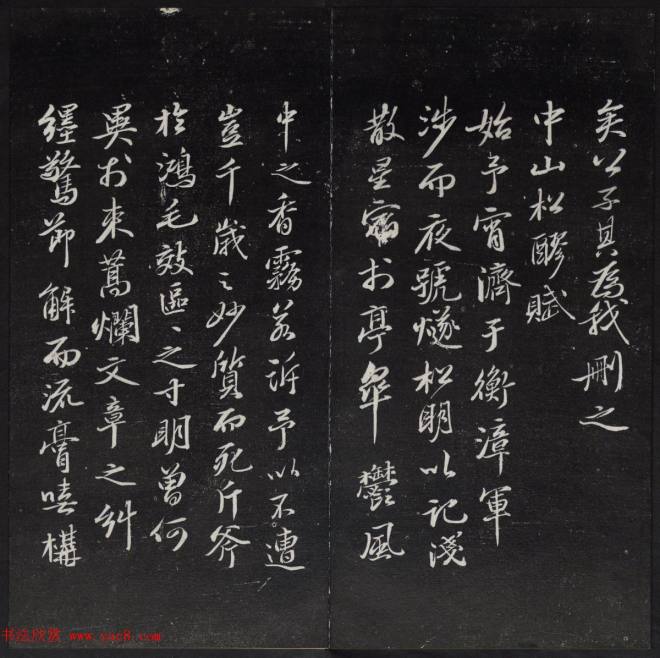 矣公子其為我刪之
中山松醪賦
始予宵濟于衡漳軍
涉而夜號燧松明以記淺
散星宿於亭皋鬱風
中之香霧若訴予以不遭
豈千歲之妙質而死斤斧
於鴻毛效區〻之寸明曾何
異於束蒿爛文章之糾
纆驚節解而流膏嗟構
书法欣赏 www.yac8.com